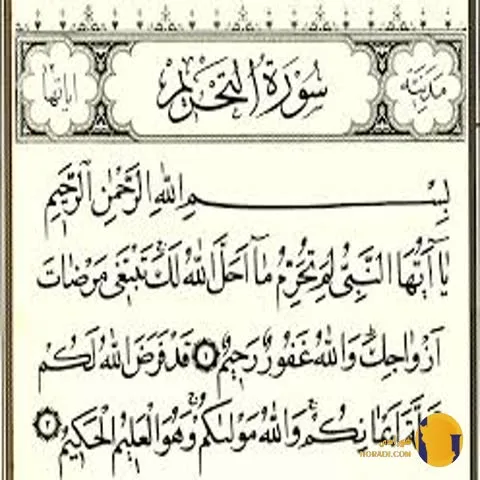 مدنية
سورة التحريم
اياتها
بِسْمِ اللّٰهِ الرَّحْمٰنِ الرَّحِيمِ
يَٓا اَيُّهَا النَّبِيُّ لِمَ تُحَرِّمُ مَٓا اَحَلَّ اللّٰهُ لَكَۚ تَبْتَغ۪ي مَرْضَاتَ
اَزْوَاجِكَۜ وَاللّٰهُ غَفُورٌ رَح۪يمٌ ١ قَدْ فَرَضَ اللّٰهُ لَكُمْ
اَيْمَانِكُمْۚ وَاللّٰهُ مَوْلٰيكُمْۚ وَهُوَ الْعَل۪يمُ الْحَك۪يمُ ٢
HORADI.COM